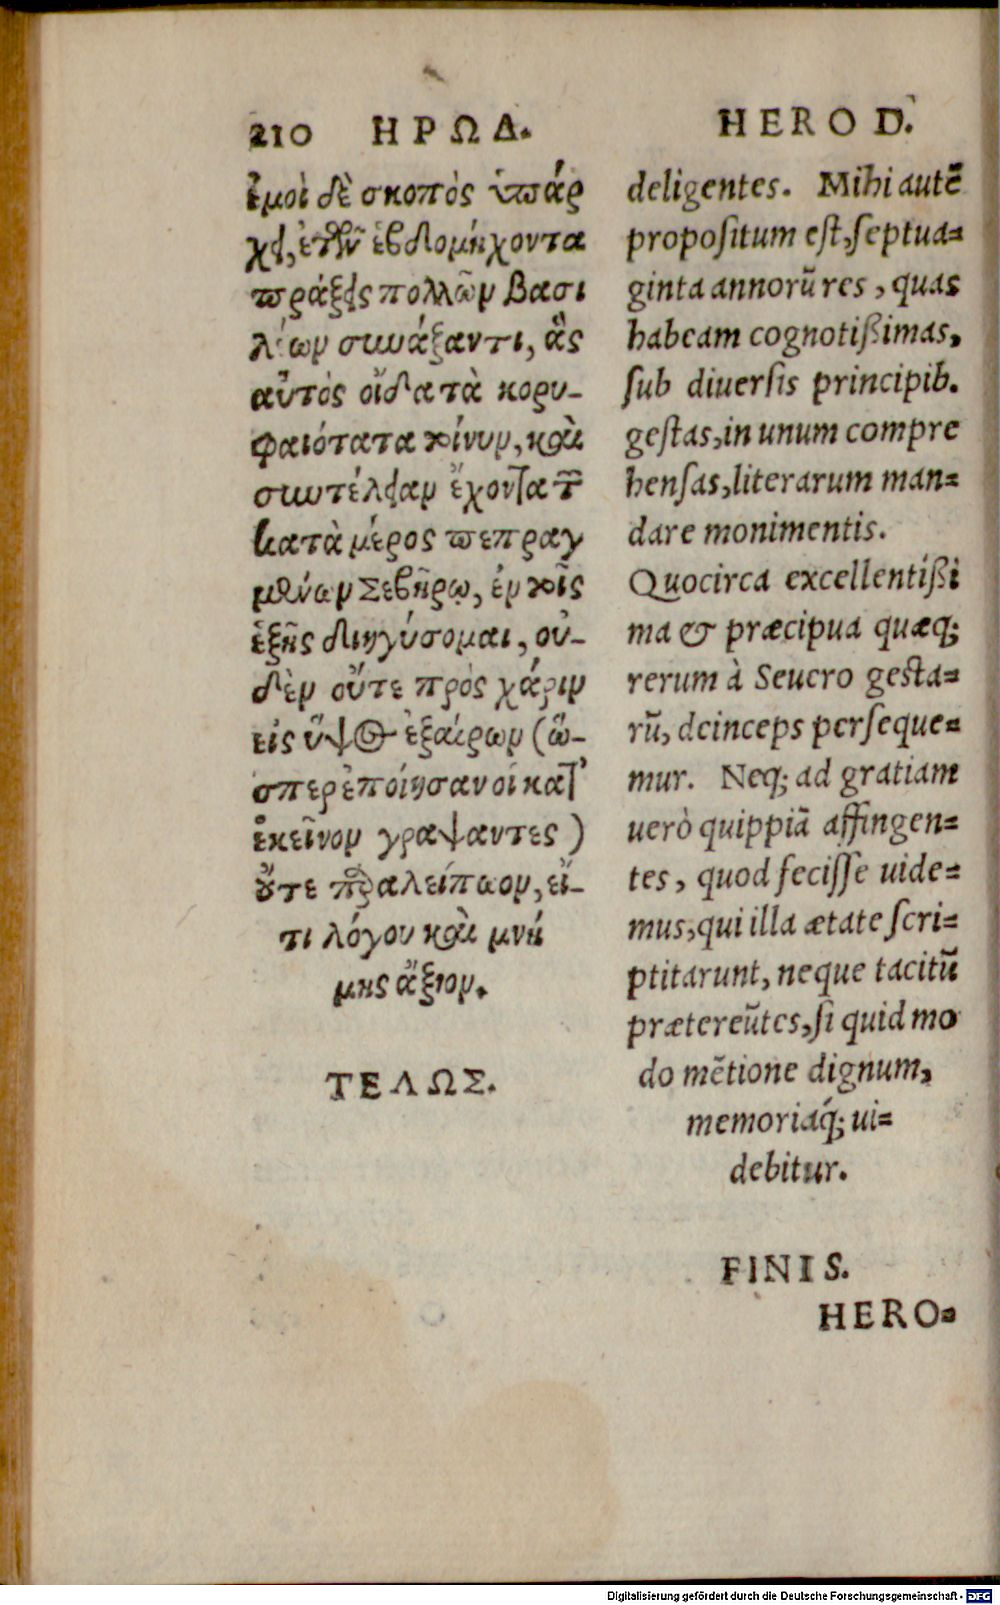 210 ΗΡΩΔ.
ἐμοὶ δὲ σκοπὸς ὑπάρ
χει, ἐτῶν ἑβδομήκοντα
πράξεις πολλῶν βασι
λέων συντάξαντι, ἃς
αὐτὸς οἶδα τὰ κορυ-
φαιότατα καὶ
συντέλειαν ἔχοντα τῶν
κατὰ μέρος πεπραγ
μένων Σεβήρῳ, ἐν τοῖς
ἑξῆς διηγήσομαι, οὐ-
δὲν οὔτε πρὸς χάριν
εἰς ὕψος ἐξαίρων (ὥ-
σπερ ἐποίησαν οἱ κατ'
ἐκεῖνον γραψαντες)
οὔτε παραλείπων, εἴ-
τι λόγου καὶ μνή
μης ἄξιον.
ΤΕΛΩΣ.
HEROD.
deligentes. Mihi autē
propositum est, septua=
ginta annorū res, quas
habeam cognotißimas,
sub diuersis principib.
gestas, in unum compre
hensas, literarum man=
dare monimentis.
Quocirca excellentißi
ma & præcipua quæq;
rerum à Seuero gesta=
rū, deinceps perseque=
mur. Neq; ad gratiam
uerò quippiā affingen=
tes, quod fecisse uide=
mus, qui illa ætate scri=
ptitarunt, neque tacitū
prætereūtes, si quid mo
do mētione dignum,
memoriáq; ui=
debitur.
FINIS.
HERO=
Digitalisierung gefördert durch die Deutsche Forschungsgemeinschaft - DFG